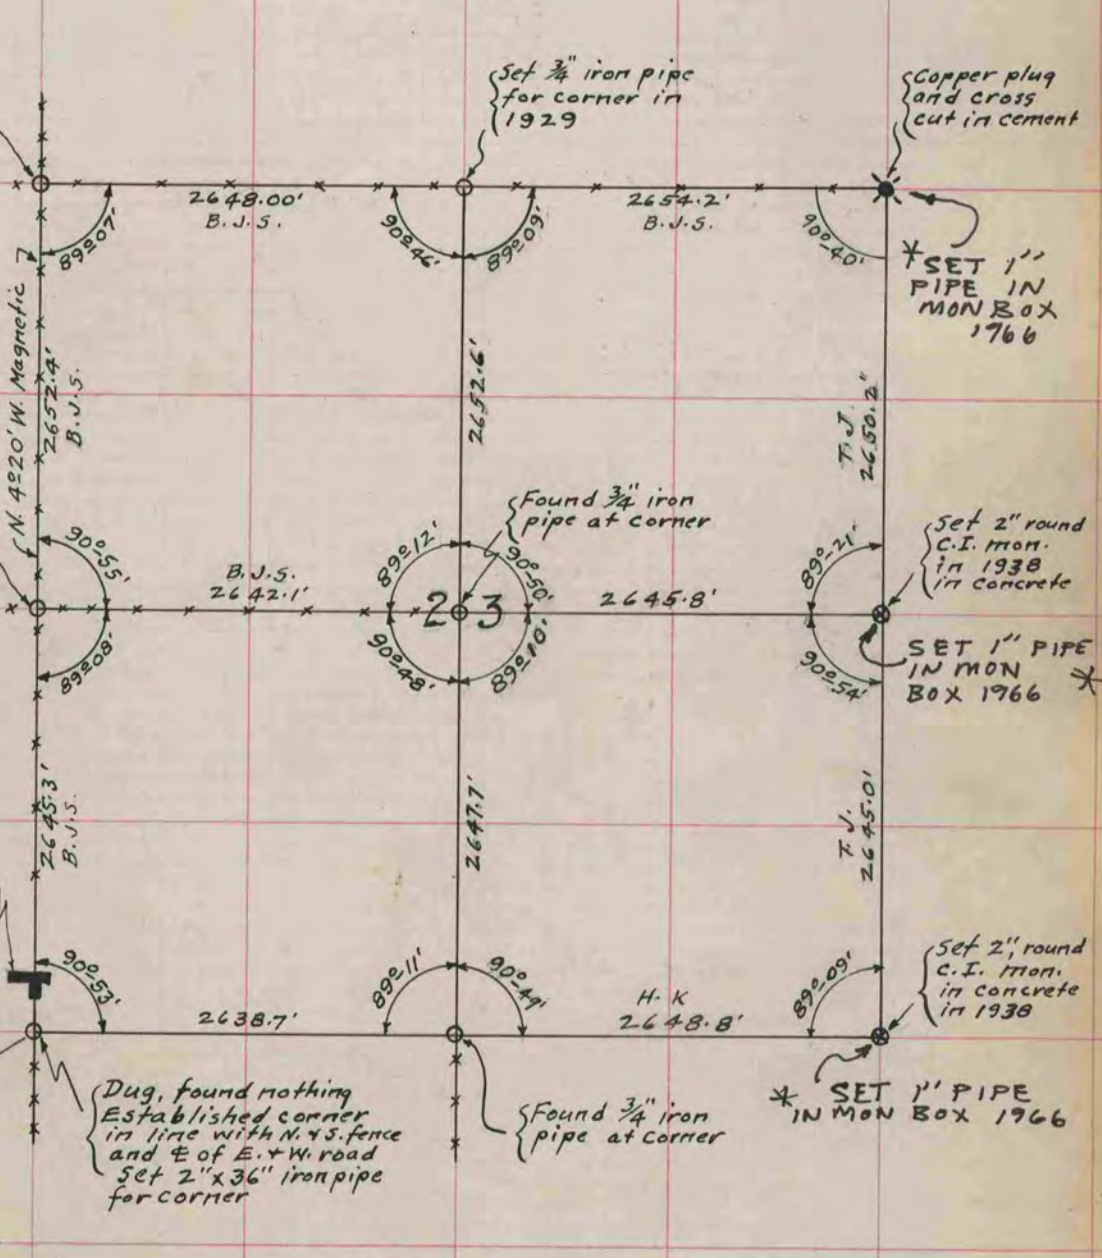 Set 3/4" iron pipe
for corner in
1929
Copper plug
and cross
cut in cement
2648.00'
B.J.S.
2654.2'
B.J.S.
89º07'
90º46'
89º09'
90º-40'
* SET 1"
PIPE IN
MON BOX
1966
N. 4º20' W. Magnetic
2652.4'
B.J.S.
2652.6'
T.J.
2650.2"
Found 3/4" iron
pipe at corner
Set 2" round
C.I. mon.
in 1938
in concrete
90º-55'
89º12'
90º-50'
89º-21'
B.J.S.
2642.1'
23
2645.8'
89º08'
90º-48'
89º10'
90º-54'
SET 1" PIPE
IN MON
BOX 1966 *
2645.3'
B.J.S.
2647.7'
T.J.
2645.0'
90º-53'
89º-11'
90º-49'
89º-09'
Set 2", round
C.I. mon.
in concrete
in 1938
2638.7'
H.K
2648.8'
Dug, found nothing
Established corner
in line with N. & S. fence
and ℄ of E. & W. road
Set 2"x36" iron pipe
for corner
Found 3/4" iron
pipe at corner
* SET 1" PIPE
IN MON BOX 1966